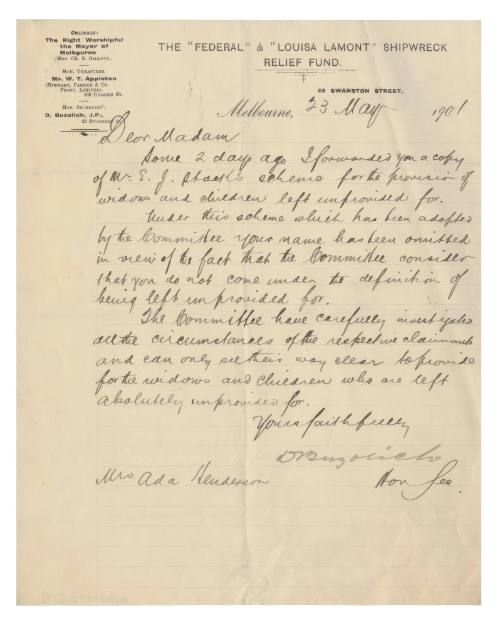 CHAIRMAN:
The Right Worshipful
the Mayor of
Melbourne
HON. TREASURER
Mr. W. T. Appleton
HON. SECRETARY:
D. Buzolich, J.P.,
THE "FEDERAL" & "LOUISA LAMONT" SHIPWRECK
RELIEF FUND.
28 SWANSTON STREET.
Melbourne, 23 May 1901
Dear Madam
Some 2 days ago I forwarded you a copy
of Mr. E. J. Stock's scheme for the provision of
widows and children left unprovided for.
Under this scheme which has been adopted
by the Committee your name has been omitted
in view of the fact that the Committee consider
that you do not come under the definition of
being left unprovided for.
The Committee have carefully investigated
all the circumstances of the respective claimants
and can only see their way clear to provide
for the widows and children who are left
absolutely unprovided for.
Yours faithfully
D Buzolich
Hon Sec.
Mrs Ada Henderson